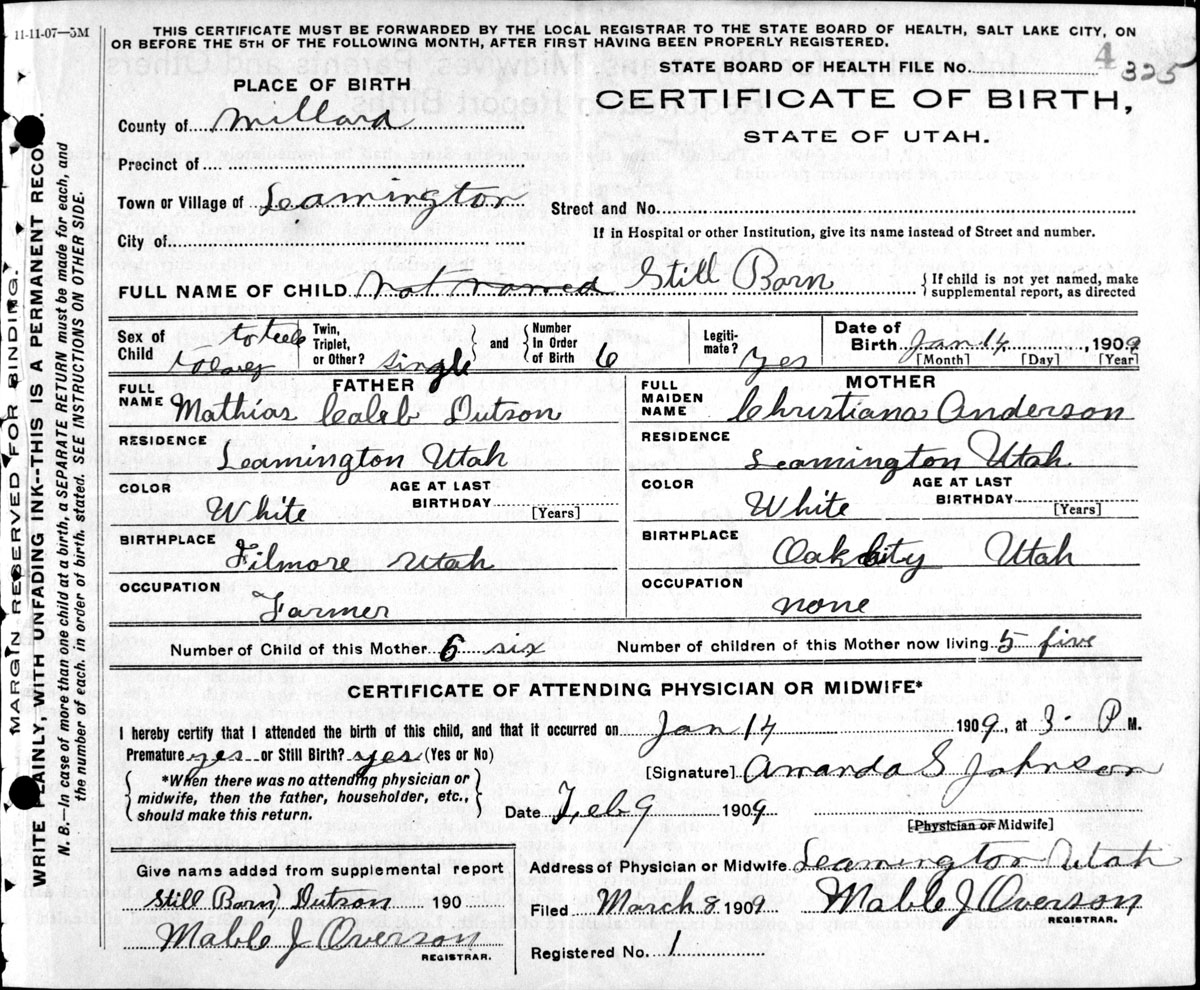 11-11-07—5M
THIS CERTIFICATE MUST BE FORWARDED BY THE LOCAL REGISTRAR TO THE STATE BOARD OF HEALTH, SALT LAKE CITY, ON
OR BEFORE THE 5TH OF THE FOLLOWING MONTH, AFTER FIRST HAVING BEEN PROPERLY REGISTERED.
STATE BOARD OF HEALTH FILE NO. 4 325
PLACE OF BIRTH
CERTIFICATE OF BIRTH,
STATE OF UTAH.
County of Millard
Precinct of
Town or Village of Leamington
Street and No.
City of
If in Hospital or other Institution, give its name instead of Street and number.
FULL NAME OF CHILD Not named Still Born
{If child is not yet named, make
supplemental report, as directed
Sex of Child
Twin, Triplet, or Other? Single
and
Number In Order of Birth 6
Legiti-mate? yes
Date of Birth Jan 14, 1909
[Month] [Day] [Year]
FATHER
FULL NAME Mathias Caleb Dutson
RESIDENCE Leamington Utah
COLOR White
AGE AT LAST BIRTHDAY [Years]
BIRTHPLACE Filmore Utah
OCCUPATION Farmer
MOTHER
FULL MAIDEN NAME Christiana Anderson
RESIDENCE Leamington Utah
COLOR White
AGE AT LAST BIRTHDAY [Years]
BIRTHPLACE Oak City Utah
OCCUPATION none
Number of Child of this Mother 6 six
Number of children of this Mother now living 5 five
CERTIFICATE OF ATTENDING PHYSICIAN OR MIDWIFE*
I hereby certify that I attended the birth of this child, and that it occurred on Jan 14 1909, at 3- P M.
Premature yes or Still Birth? yes (Yes or No)
{*When there was no attending physician or
midwife, then the father, householder, etc.,
should make this return.}
[Signature] Amanda S Johnson
Date Feb 9 1909
[Physician or Midwife]
Give name added from supplemental report
Still Born, Dutson 190
Mable J Overson
REGISTRAR.
Address of Physician or Midwife Leamington Utah
Filed March 8 1909 Mable J Overson
REGISTRAR.
Registered No. 1
MARGIN RESERVED FOR BINDING.
WRITE PLAINLY, WITH UNFADING INK--THIS IS A PERMANENT RECO
N. B.—In case of more than one child at a birth, a SEPARATE RETURN must be made for each, and
the number of each, in order of birth, stated. SEE INSTRUCTIONS ON OTHER SIDE.